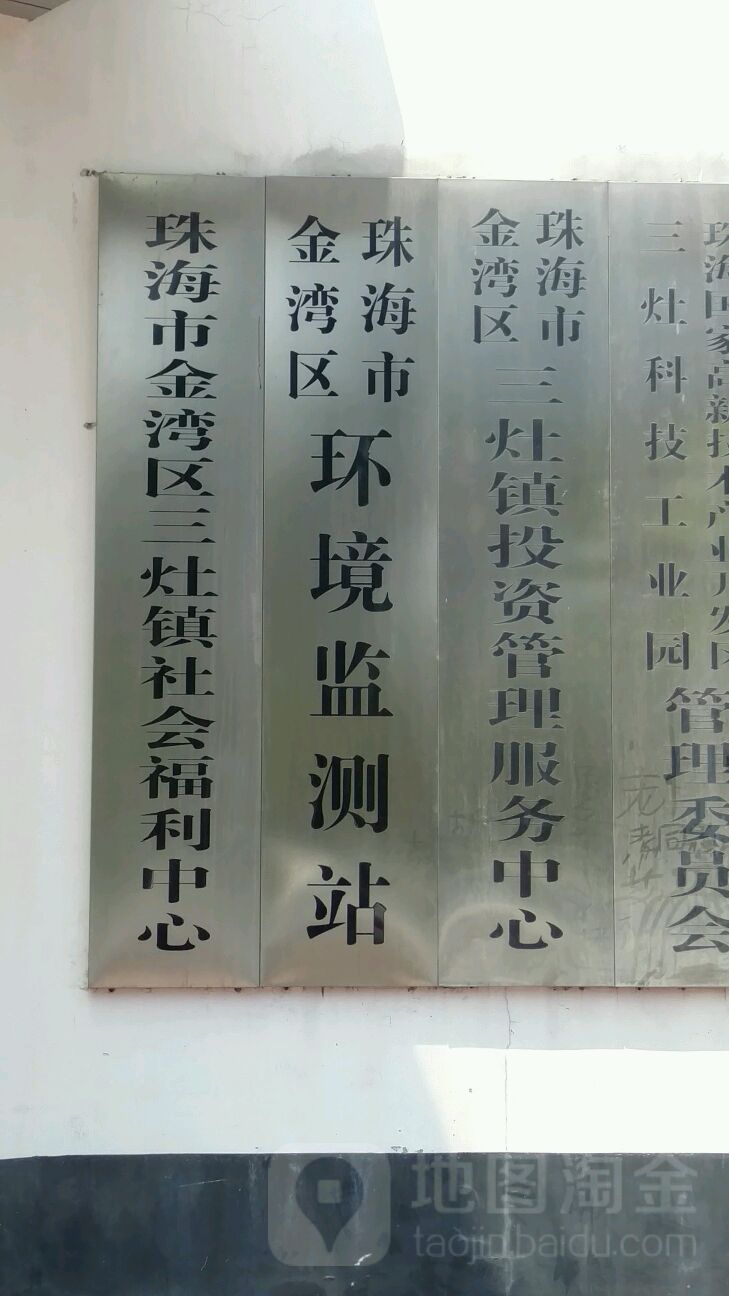 珠海市金湾区三灶镇社会福利中心
珠海市
金湾区
环境监测站
珠海市
金湾区
三灶镇投资管理服务中心
珠海国家高新技术产业开发区
三灶科技工业园
管理委员会
地图淘金
taojin.baidu.com